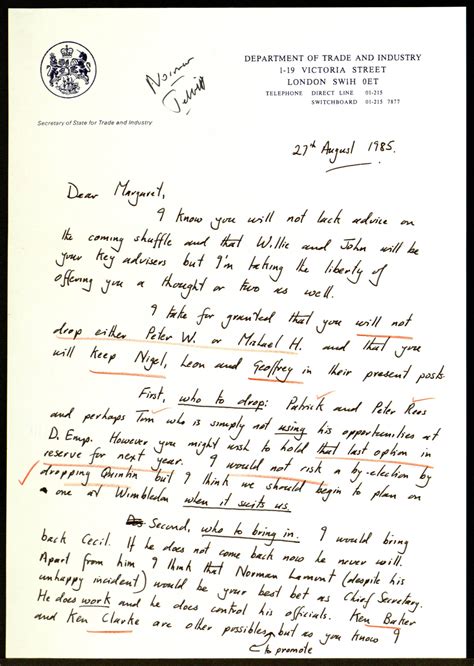 DEPARTMENT OF TRADE AND INDUSTRY
1-19 VICTORIA STREET
LONDON SW1H 0ET
TELEPHONE DIRECT LINE 01-215
SWITCHBOARD 01-215 7877
Norman
Tebbit
Secretary of State for Trade and Industry
27th August 1985.
Dear Margaret,
I know you will not lack advice on
the coming shuffle and that Willie and John will be
your key advisers but I'm taking the liberty of
offering you a thought or two as well.
I take for granted that you will not
drop either Peter W. or Michael H. and that you
will keep Nigel, Leon and Geoffrey in their present posts.
First, who to drop: Patrick and Peter Rees
and perhaps Tom who is simply not using his opportunities at
D. Emp. However you might wish to hold that last option in
reserve for next year. I would not risk a by-election by
dropping Quintin but I think we should begin to plan on
one at Wimbledon when it suits us.
Second, who to bring in. I would bring
back Cecil. If he does not come back now he never will.
Apart from him I think that Norman Lamont (despite his
unhappy incident) would be your best bet as Chief Secretary.
He does work and he does control his officials. Ken Baker
and Ken Clarke are other possibles but as you know I
to promote